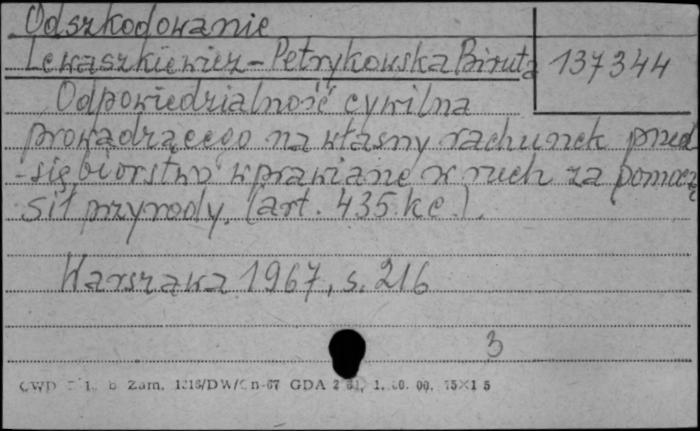 Odszkodowanie
Lewaszkiewicz-Petrykowska Biruta 137344
Odpowiedzialność cywilna
prowadzącego na własny rachunek przed
-siębiorstwo wprawiane w ruch za pomocą
sił przyrody. (art. 435 kc.).
Warszawa 1967, s. 216
3
CWD Zam. 1316/DW/ n-67 GDA